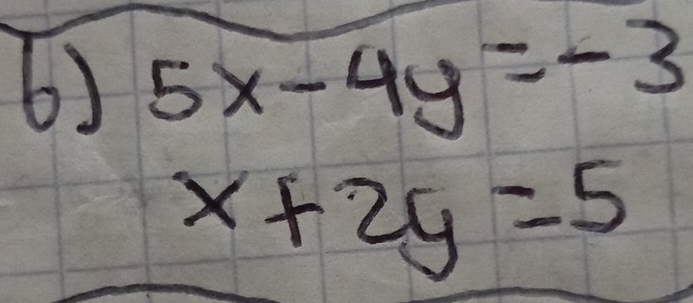 b) 5x-4y=-3
x+2y=5